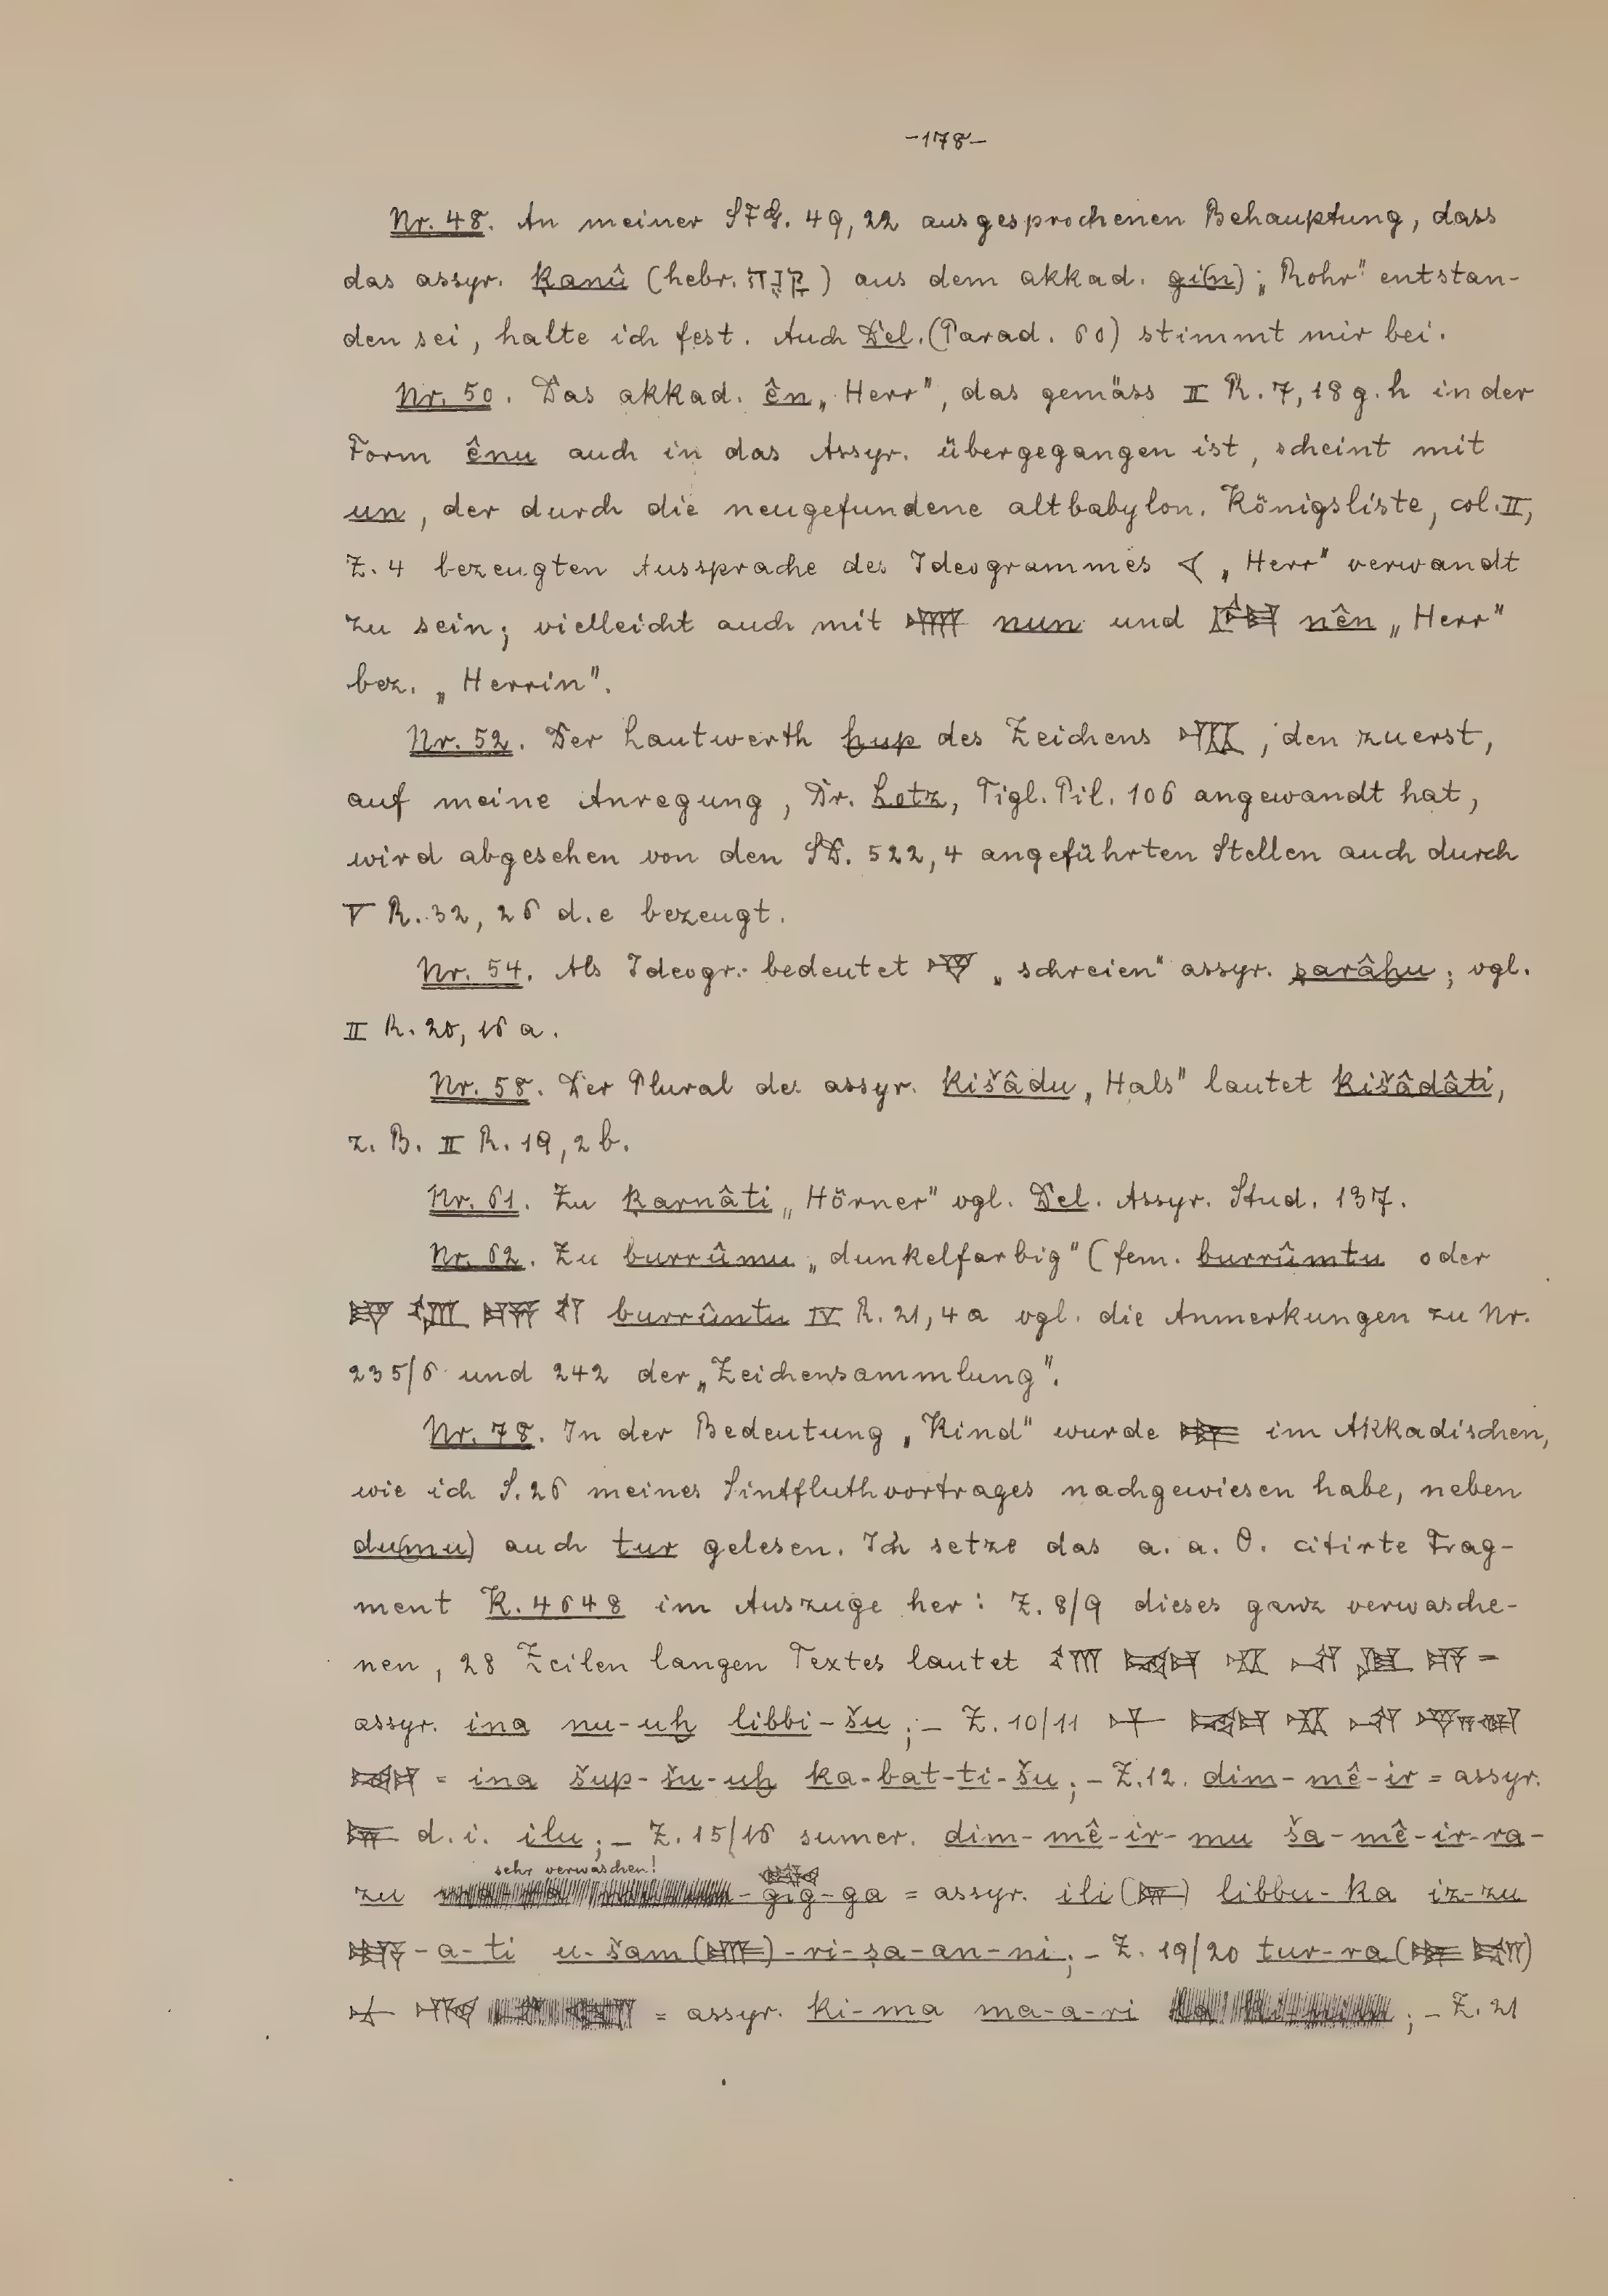 -178-
Nr. 48. An meiner SFG. 49, 22 ausgesprochenen Behauptung, dass
das assyr. ḳanû (hebr. קָנֶה) aus dem akkad. gi(n) „Rohr" entstan-
den sei, halte ich fest. Auch Del. (Parad. 60) stimmt mir bei.
Nr. 50. Das akkad. ên „Herr", das gemäss II R. 7, 18 g. h in der
Form ênu auch in das Assyr. übergegangen ist, scheint mit
un, der durch die neugefundene altbabylon. Königsliste, col. II,
Z. 4 bezeugten Aussprache des Ideogrammes „Herr" verwandt
zu sein; vielleicht auch mit nun und nên „Herr"
bez. „Herrin".
Nr. 52. Der Lautwerth ḫup des Zeichens , den zuerst,
auf meine Anregung, Dr. Lotz, Tigl. Pil. 106 angewandt hat,
wird abgesehen von den 522, 4 angeführten Stellen auch durch
V R. 32, 26 d. e bezeugt.
Nr. 54. Als Ideogr. bedeutet „schreien" assyr. ṣarâḫu; vgl.
II R. 20, 16 a.
Nr. 58. Der Plural des assyr. kišâdu „Hals" lautet kišâdâti,
z. B. II R. 19, 2 b.
Nr. 61. Zu ḳarnâti „Hörner" vgl. Del. Assyr. Stud. 137.
Nr. 62. Zu burrûmu „dunkelfarbig" (fem. burrûmtu oder
burrûntu IV R. 21, 4 a vgl. die Anmerkungen zu Nr.
235/6 und 242 der „Zeichensammlung".
Nr. 78. In der Bedeutung „Kind" wurde im Akkadischen,
wie ich S. 26 meines Sintfluthvortrages nachgewiesen habe, neben
du(mu) auch tur gelesen. Ich setze das a. a. O. citirte Frag-
ment K. 4648 im Auszuge her: Z. 8/9 dieses ganz verwasche-
nen, 28 Zeilen langen Textes lautet =
assyr. ina nu-uḫ libbi-šu; – Z. 10/11
= ina šup-šu-uḫ ka-bat-ti-šu; – Z. 12. dim-mê-ir = assyr.
d. i. ilu; – Z. 15/16 sumer. dim-mê-ir-mu ša-mê-ir-ra-
sehr verwaschen!
zu -gig-ga = assyr. ili ( ) libbu-ka iz-zu
-a-ti u-šam ( )-ri-ṣa-an-ni; – Z. 19/20 tur-ra ( )
= assyr. ki-ma ma-a-ri ; – Z. 21